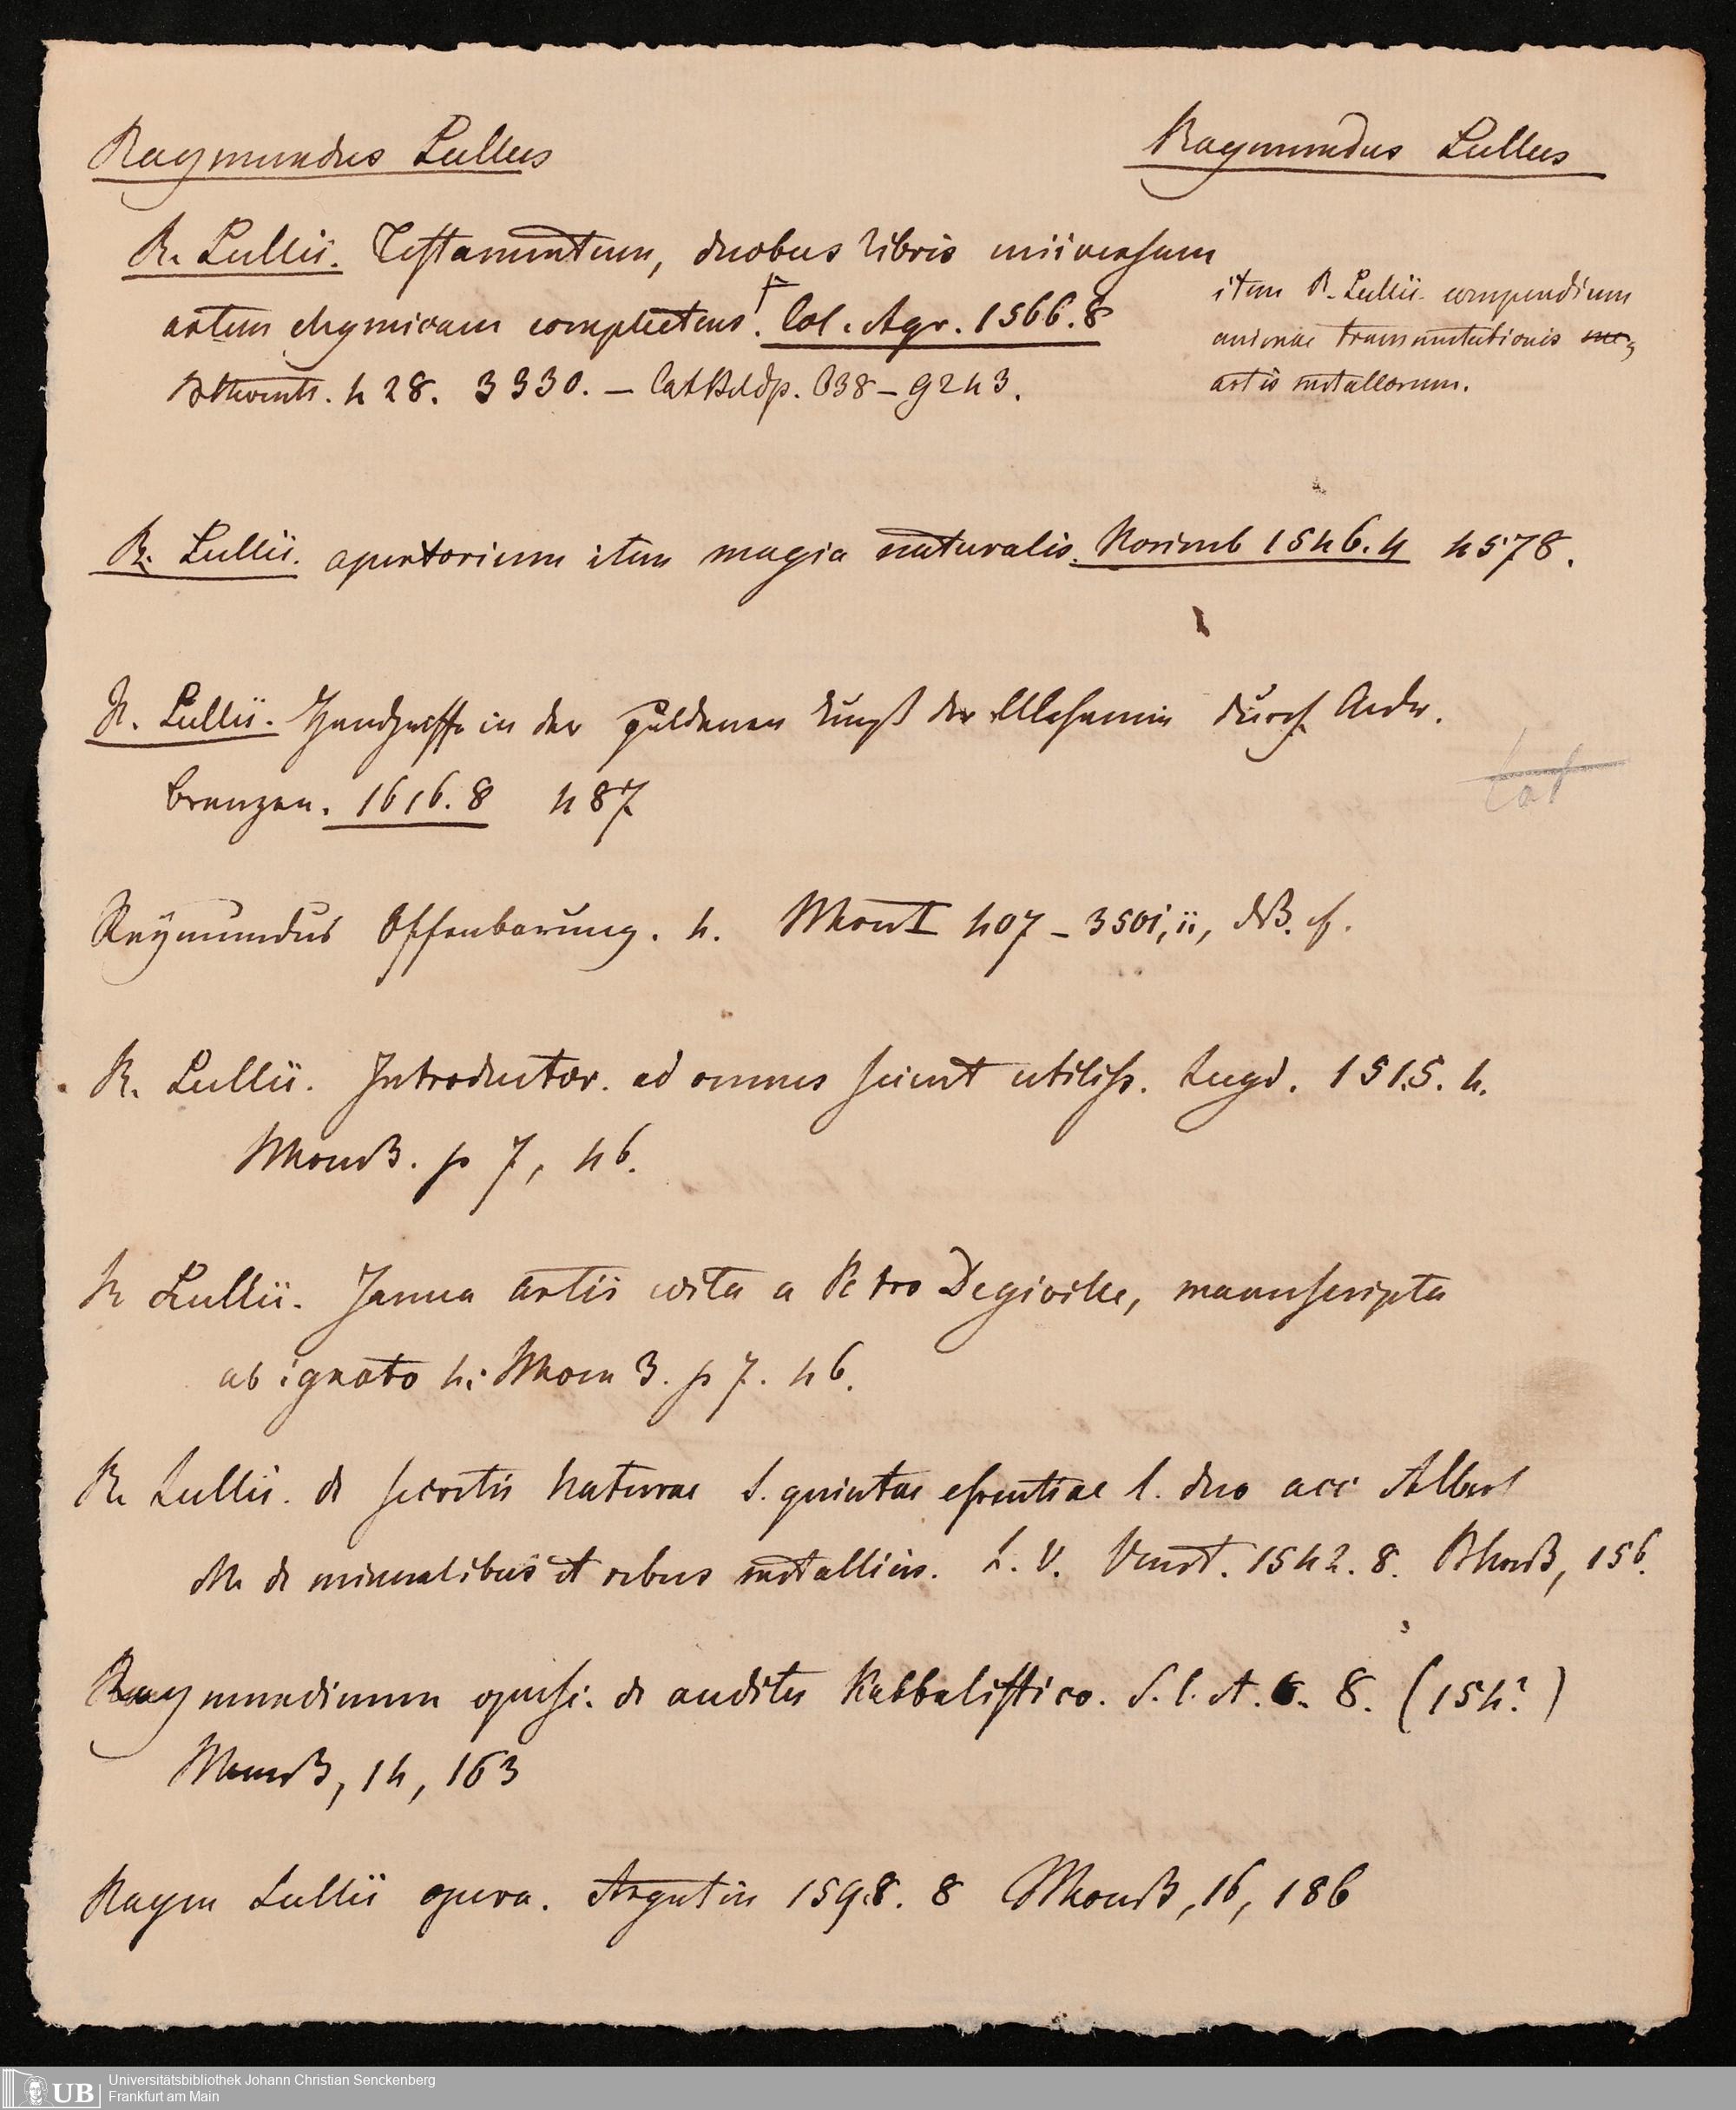 Raymundus Lullus
Raymundus Lullus
R. Lullii. Testamentum, duobus libris universam
artem chymicam complectens. Col. Agr. 1566. 8
item R. Lullii compendium
animae transmutationis
artis metallorum.
428. 3330. — 638 — 9243.
R. Lullii. apertorium item magia naturalis. Norimb 1546. 4 4578.
R. Lullii. Handgriffe in der guldenen Kunst der Alchamin durch
1616. 8 487
Raymundus Offenbarung. 4. 407 – 350i, ii,
R. Lullii. Introductor. ad omnes scient utiliss. Lugd. 1515. 4.
p 7, 46.
R Lullii. Janua artis edita a Petro Degiville, manuscripta
ab ignoto 4. p 7. 46.
R. Lullii. de secretis Naturae s. quintae essentiae l. duo acc Albert
M. de mineralibus et rebus metallicis. L. V. Venet. 1542. 8. 156.
Raymundinum opusc. de auditu Kabbalistico. S. l. A. 8. (154?)
14, 163
Raym Lullii opera. Argentin 1598. 8 16, 186
UB
Universitätsbibliothek Johann Christian Senckenberg
Frankfurt am Main